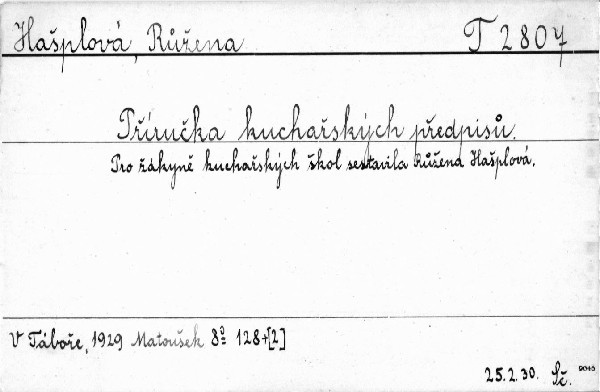 Hašplová, Růžena T 2807
Příručka kuchařských předpisů.
Pro žákyně kuchařských škol sestavila Růžena Hašplová.
V Táboře, 1929 Matoušek 8° 128+[2]
25.2.30. Sč. 9045